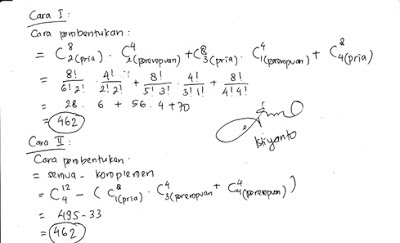 Cara I :
Cara pembentukan :
= C⁸₂(pria) . C⁴₂(perempuan) + C⁸₃(pria) . C⁴₁(perempuan) + C⁸₄(pria)
= 8!/6!2! . 4!/2!2! + 8!/5!3! . 4!/3!1! + 8!/4!4!
= 28 . 6 + 56 . 4 + 70
= 462
Istiyanto
Cara II :
Cara pembentukan .
= semua - komplemen
= C¹²₄ - ( C⁸₁(pria) . C⁴₃(perempuan) + C⁴₄(perempuan) )
= 495 - 33
= 462